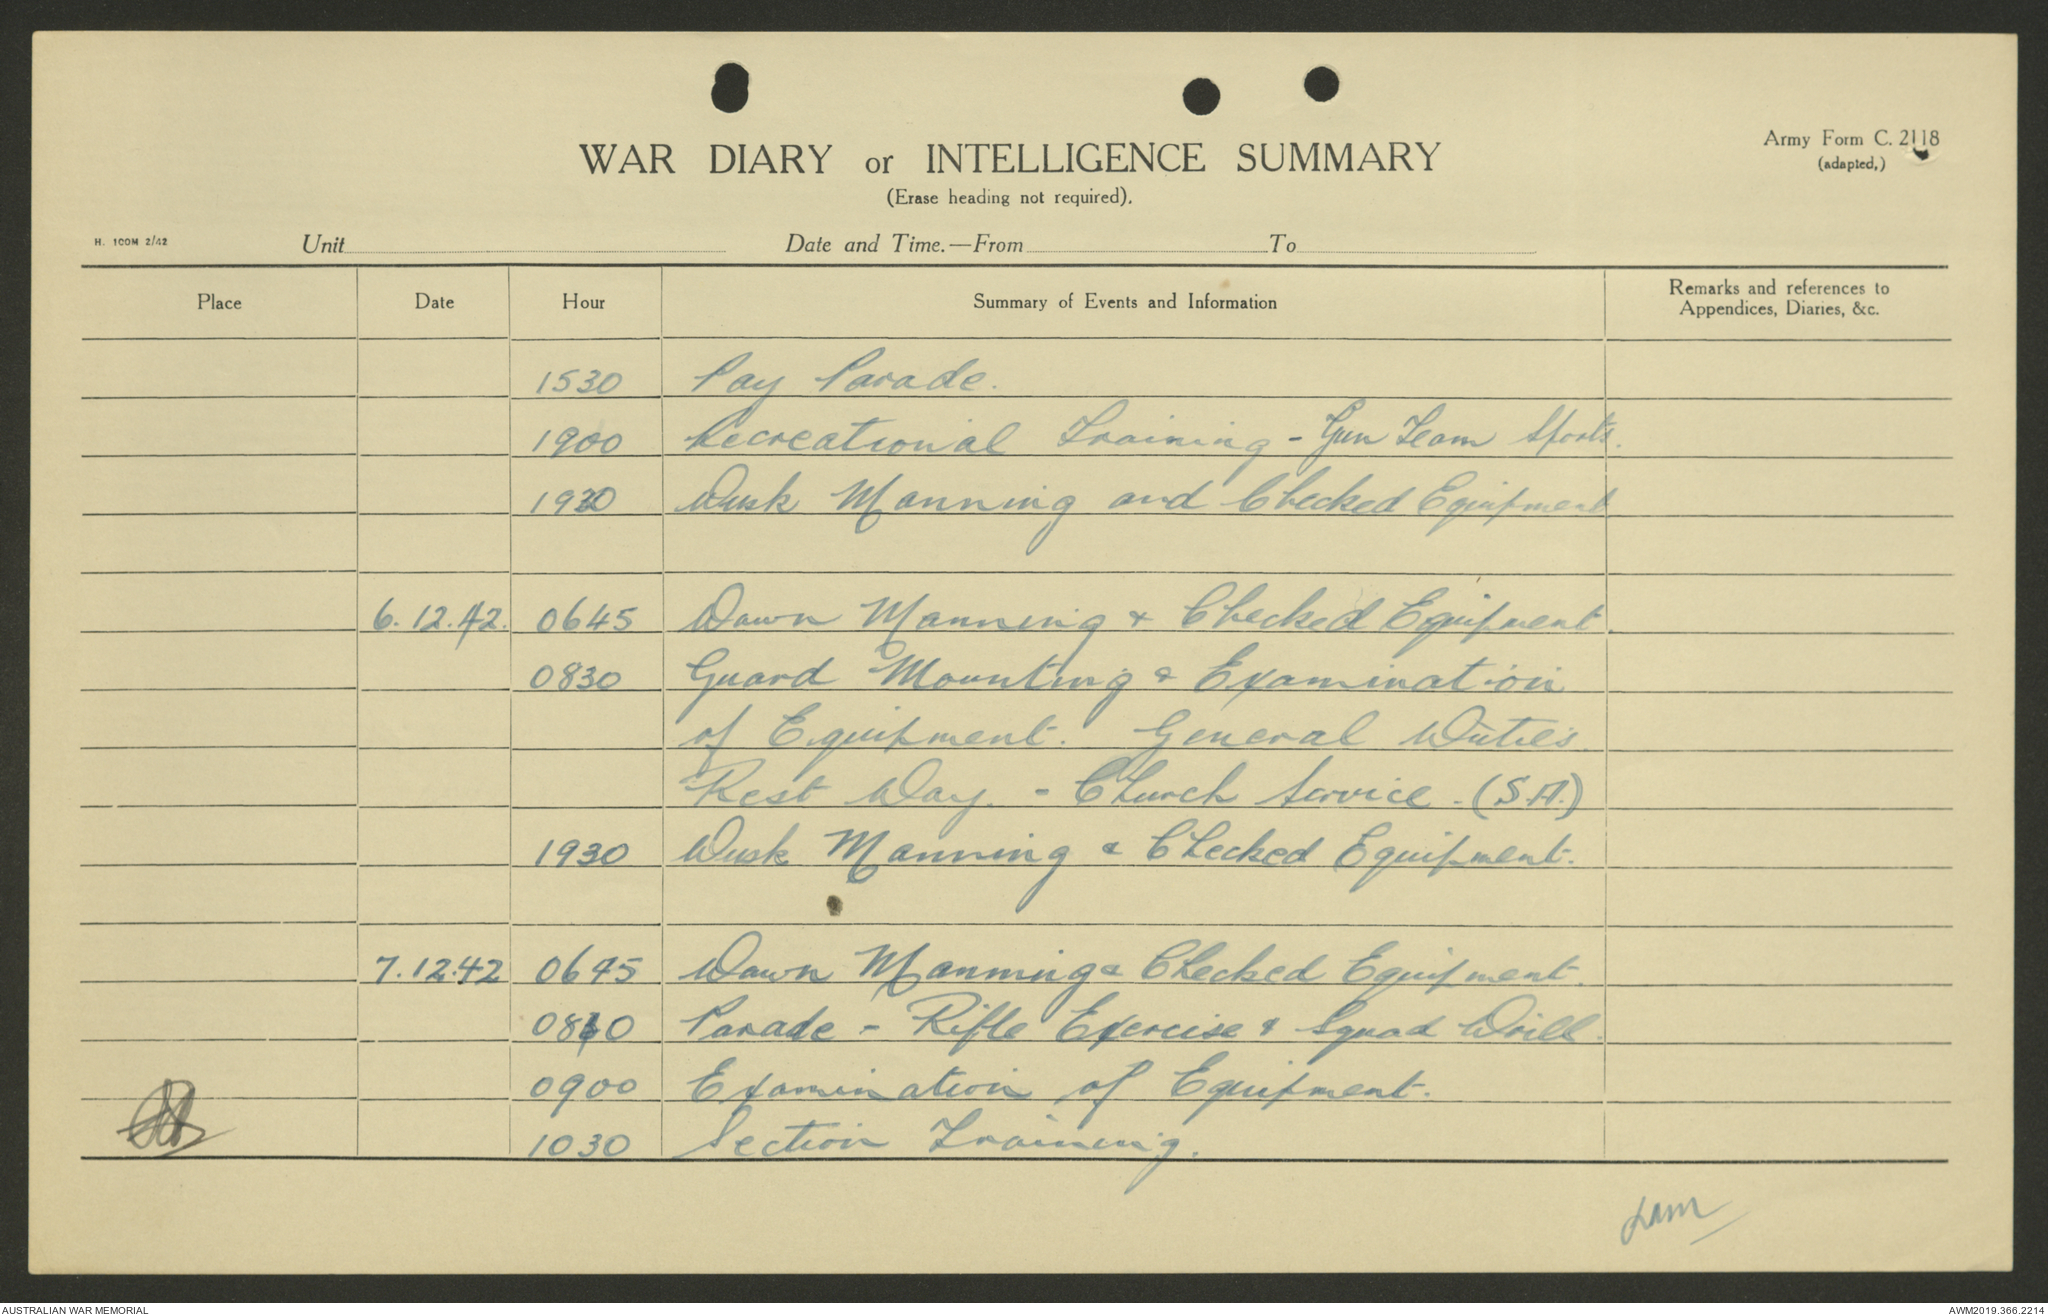 WAR DIARY or INTELLIGENCE SUMMARY
Army Form C. 2118
(adapted,)
(Erase heading not required).
H. 100M 2/42
Unit Date and Time.—From To
Place Date Hour Summary of Events and Information Remarks and references to Appendices, Diaries, &c.
1530 Pay Parade.
1900 Recreational Training - Gun Team Sports.
1930 Dusk Manning and Checked Equipment
6.12.42. 0645 Dawn Manning & Checked Equipment.
0830 Guard Mounting & Examination
of Equipment. General Duties.
Rest Day. - Church Service. (S.A.)
1930 Dusk Manning & Checked Equipment.
7.12.42 0645 Dawn Manning & Checked Equipment.
Parade - Rifle Exercise & Squad Drill.
0900 Examination of Equipment.
1030 Section Training.
AUSTRALIAN WAR MEMORIAL
AWM2019.366.2214